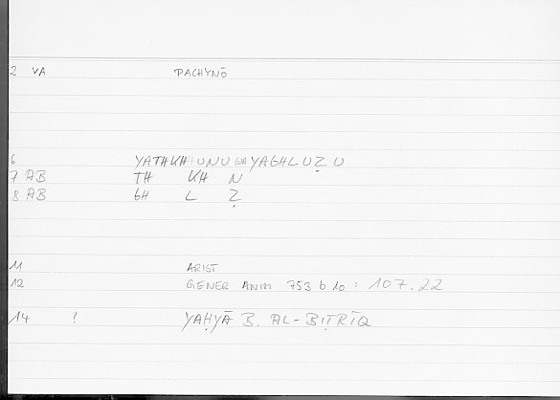 2 VA PACHYNŌ
6 YATHKHUNU WA YAGHLUẒU
7 AB TH KH N
8 AB GH L Ẓ
11 ARIST
12 GENER ANIM 753 b 10 : 107.22
14 ! YAḤYĀ B. AL-BIṬRĪQ